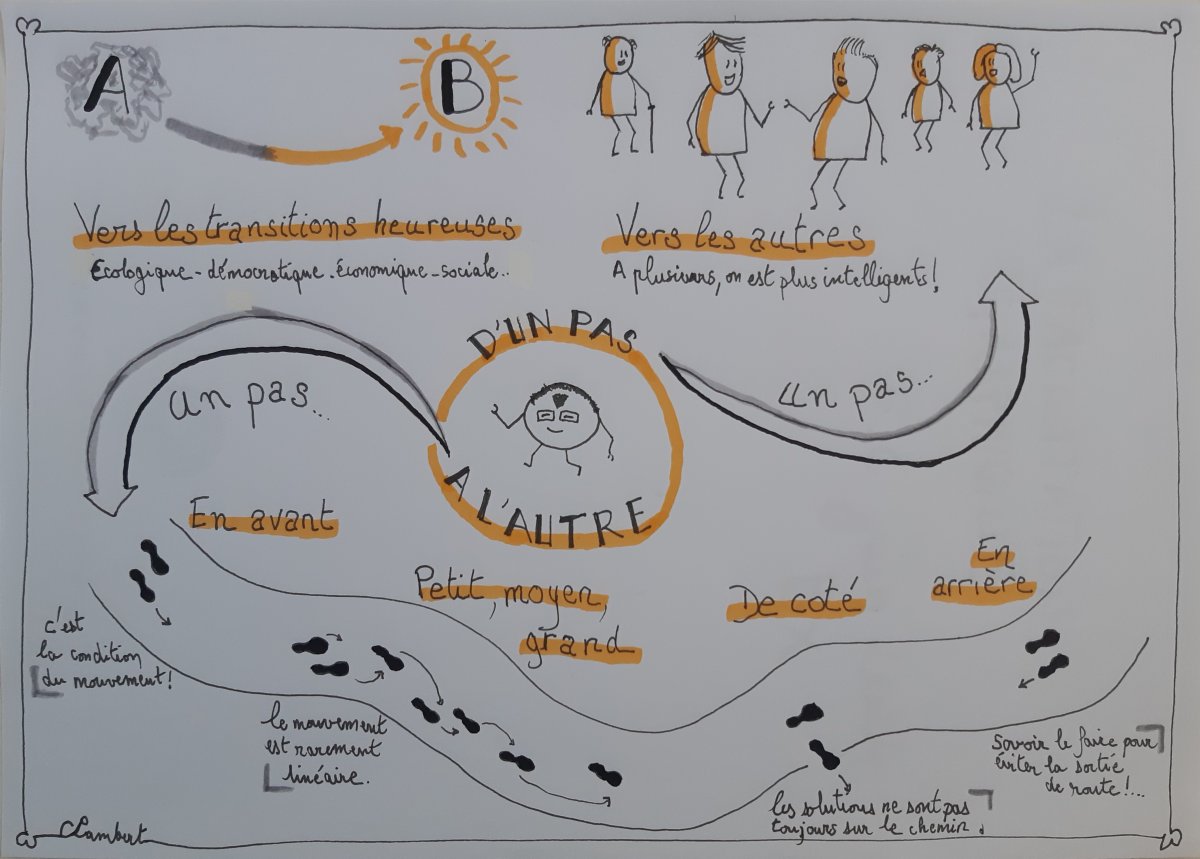 A
B
Vers les transitions heureuses
Ecologique - démocratique - économique - sociale..
Vers les autres
A plusieurs, on est plus intelligents!
D'UN PAS
A L'AUTRE
un pas...
un pas...
En avant
c'est
la condition
du mouvement!
Petit, moyen,
grand
le mouvement
est rarement
linéaire.
De coté
les solutions ne sont pas
toujours sur le chemin.
En
arrière
Savoir le faire pour
éviter la sortie
de route!...
CLambert